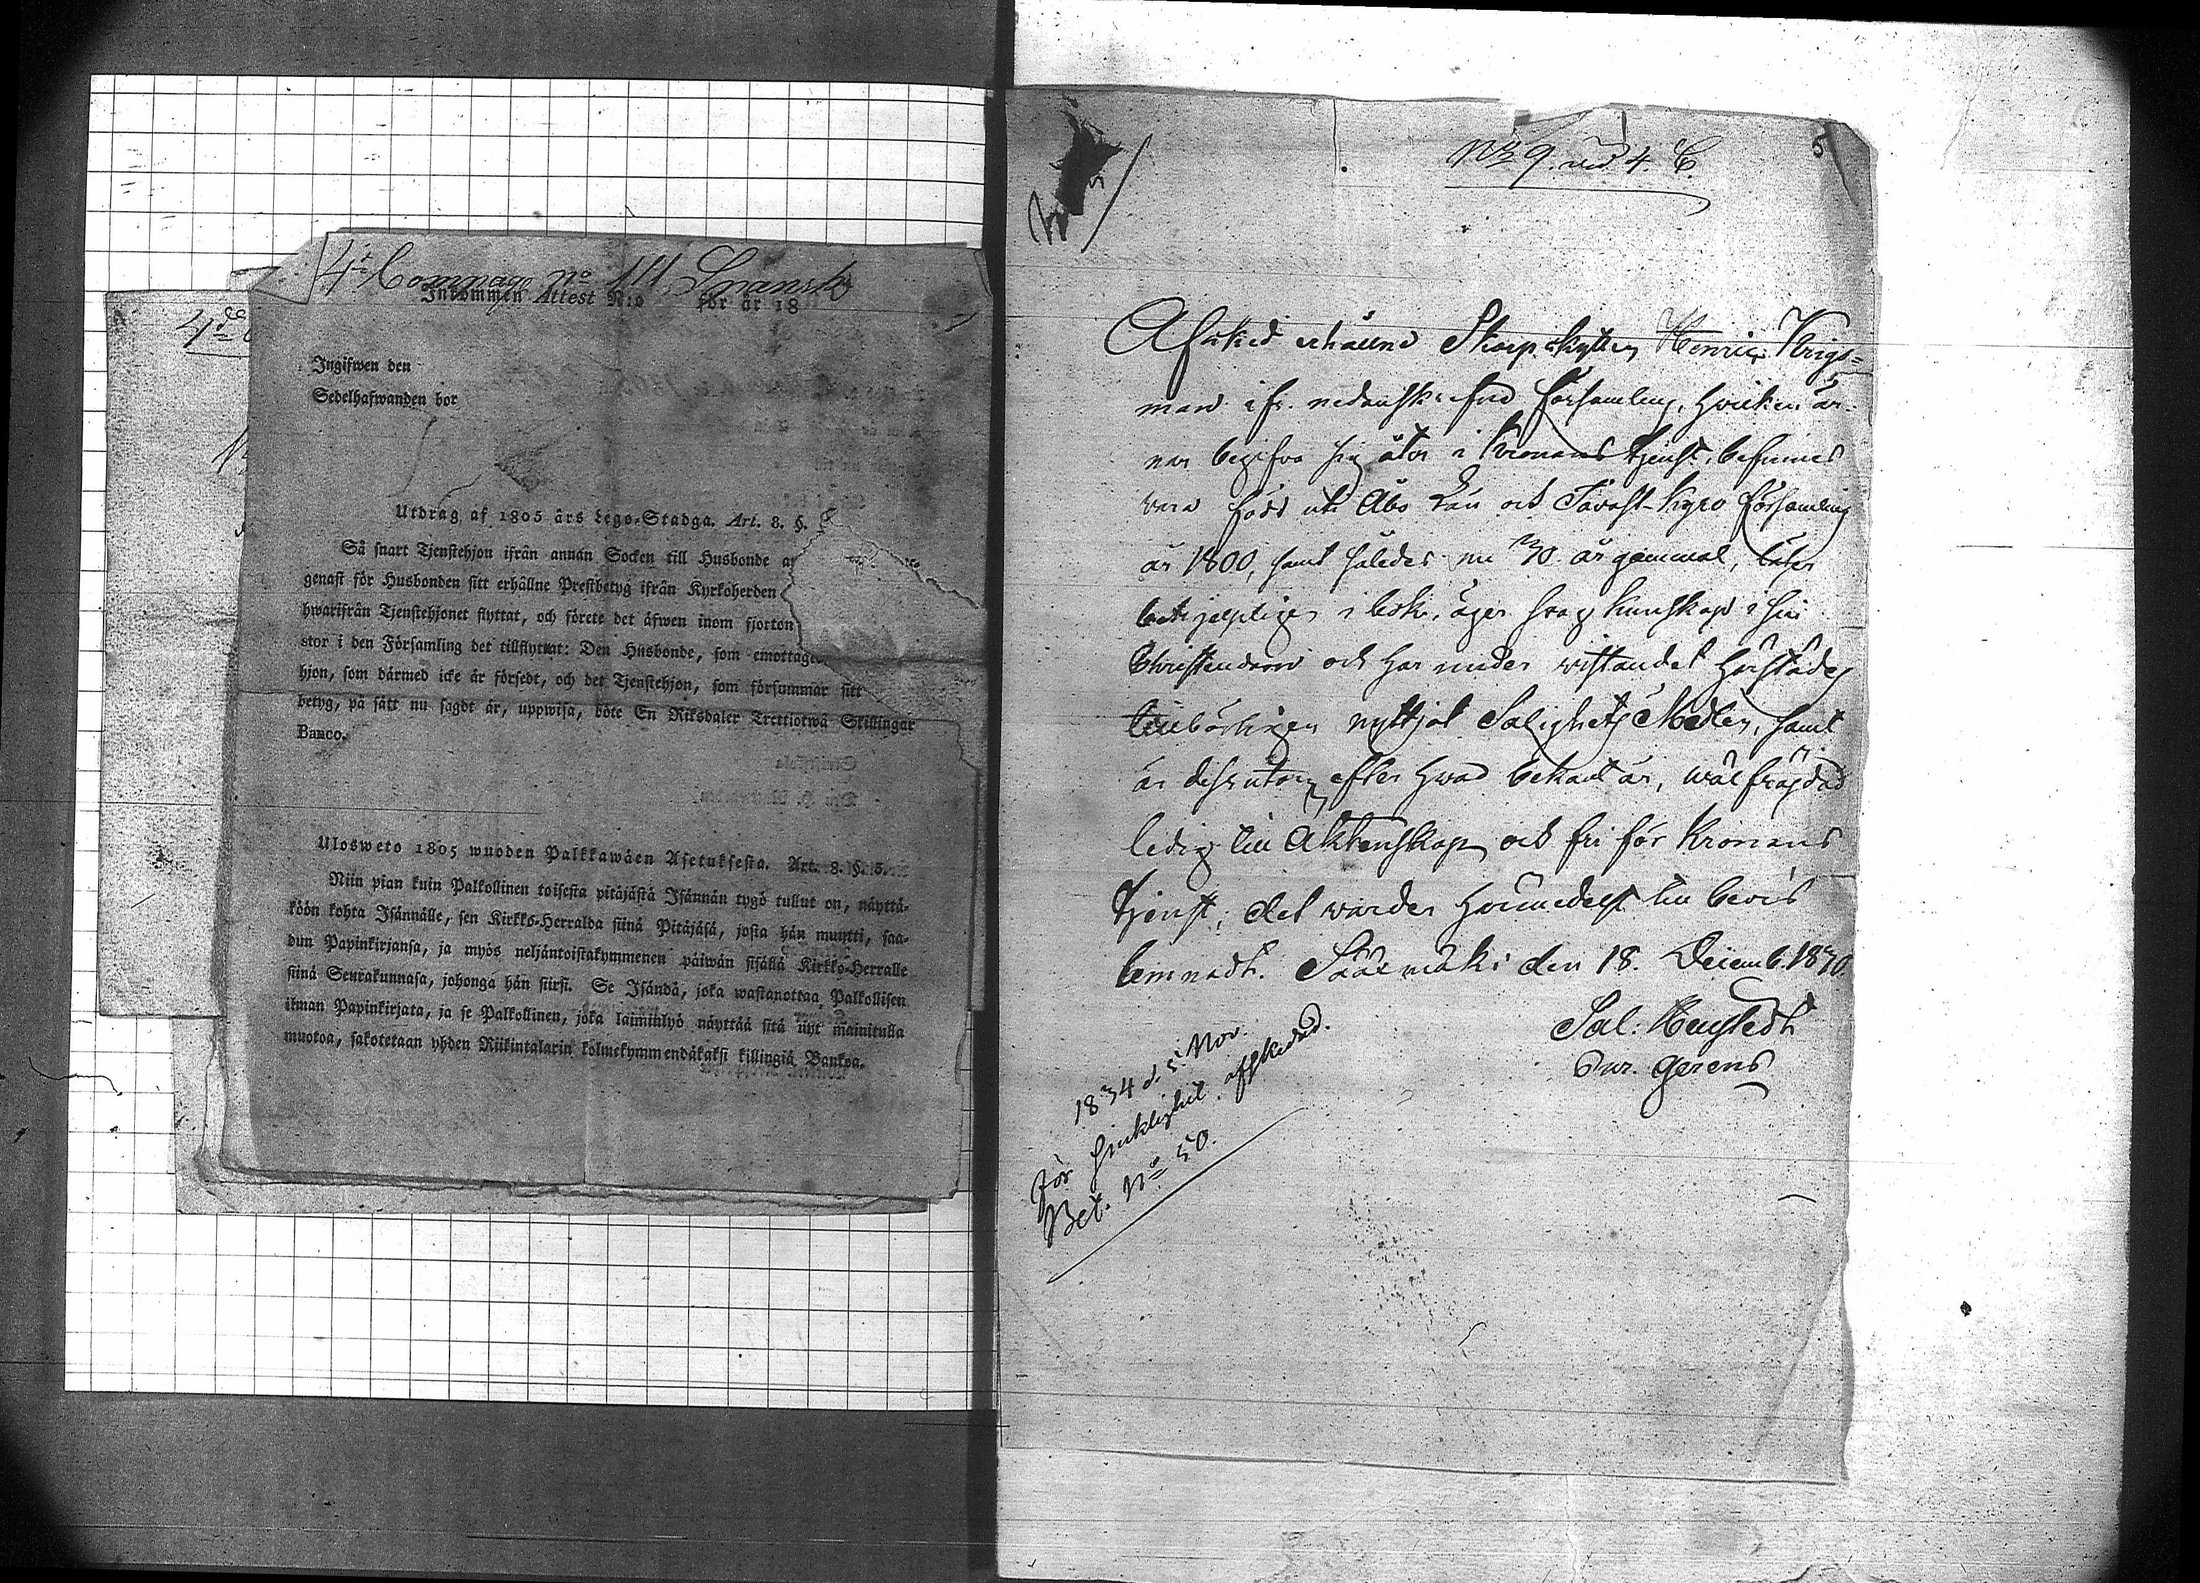 4de
4:de Compag. No 111. Snansk
Inkommen Attest N:o för år 18
Ingifwen den
Sedelhafwanden bor
Utdrag af 1805 års Lego-Stadga. Art. 8. §.
Så snart Tjenstehjon ifrån annan Socken till Husbonde
genast för Husbonden sitt erhållne Prestbetyg ifrån Kyrkoherden
hwarifrån Tjenstehjonet flyttat, och förete det äfwen inom fjorton
stor i den Församling det tillflyttat: Den Husbonde, som emottager
hjon, som därmed icke är försedt, och det Tjenstehjon, som försummar sitt
betyg, på sätt nu sagdt är, uppwisa, böte En Riksdaler Trettiotwå Skillingar
Banco.
Ulosweto 1805 wuoden Palkkawäen Asetuksesta. Art. 8. §. 5.
Niin pian kuin Palkollinen toisesta pitäjästä Isännän tygö tullut on, näyttä-
köön kohta Isännälle, sen Kirkko-Herralda siinä Pitäjäsä, josta hän muutti, saa-
dun Papinkirjansa, ja myös neljäntoistakymmenen päiwän sisällä Kirkko-Herralle
siinä Seurakunnasa, johonga hän siirsi. Se Isändä, joka wastanottaa Palkollisen
ilman Papinkirjata, ja se Palkollinen, joka laiminlyö näyttää sitä nyt mainitulla
muotoa, sakotetaan yhden Riikintalarin kolmekymmendäkaksi killingiä Bankoa.
5
No 9. vid 4. C.
Afsked erhållne Skarpskytten Henric Krigs-
man ifr. nedanskrefne församling, hvilken är-
nar begifva sig åter i Kronans tjenst, befinnes
vara född uti Åbo Län och Tavast-Kyro församling
år 1800, samt således nu 30. år gammal, läser
behjelpligen i bok, äger svag kunskap i sin
Christendom och har under vistandet härstädes
tillbörligen nyttjat Salighets Medlen, samt
är dessutom efter hvad bekant är, wälfrägdad
ledig till Äktenskap och fri för Kronans
tjenst; det warder härmedelst till bevis
lemnadt. Sääxmäki den 18. Decemb. 1830.
Sal.
Cur. gerens
1834 d. 5 Nov.
för sjuklighet afskedad.
Bet. No 50.